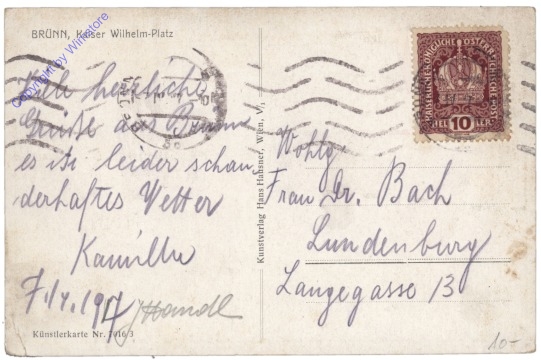 BRÜNN, Kaiser Wilhelm-Platz
Copyright by Winstore
Viele herzliche
Grüße aus Brünn
es ist leider schau
derhaftes Wetter
Kamilla
7./4. 1917
Handl
Künstlerkarte Nr. 7916/3
Kunstverlag Hans Hausner, Wien, V/1
KAISERLICHE KÖNIGLICHE ÖSTERREICHISCHE POST
HELLER
10
Wohlg
Frau Dr. Bach
Lundenburg
Langegasse 13
10-